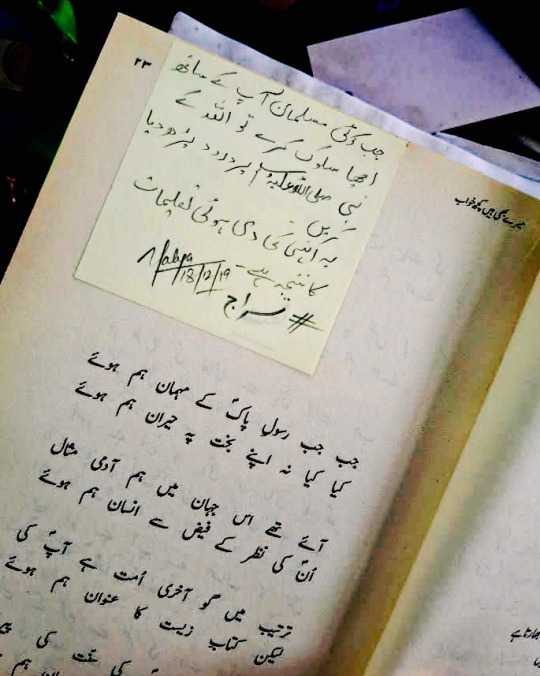 ۲۳
جب کوئی مسلمان آپ کے ساتھ
اچھا سلوک کرے تو اللہ کے
نبی صلی اللہ علیہ وسلم پر درود پڑھ دیا
کریں -
یہ انہی کی دی ہوئی تعلیمات
کا نتیجہ ہے -
18/12/19
# سراج
میرے بھی ہیں کچھ خواب
جب جب رسولِ پاکؐ کے مہمان ہم ہوئے
کیا کیا نہ اپنے بخت پہ حیران ہم ہوئے
آئے تھے اس جہان میں ہم آدمی مثال
اُنؐ کی نظر کے فیض سے انسان ہم ہوئے
ترتیب میں گو آخری اُمت ہے آپؐ کی
لیکن کتابِ زیست کا عنوان ہم ہوئے
کی سنت کی